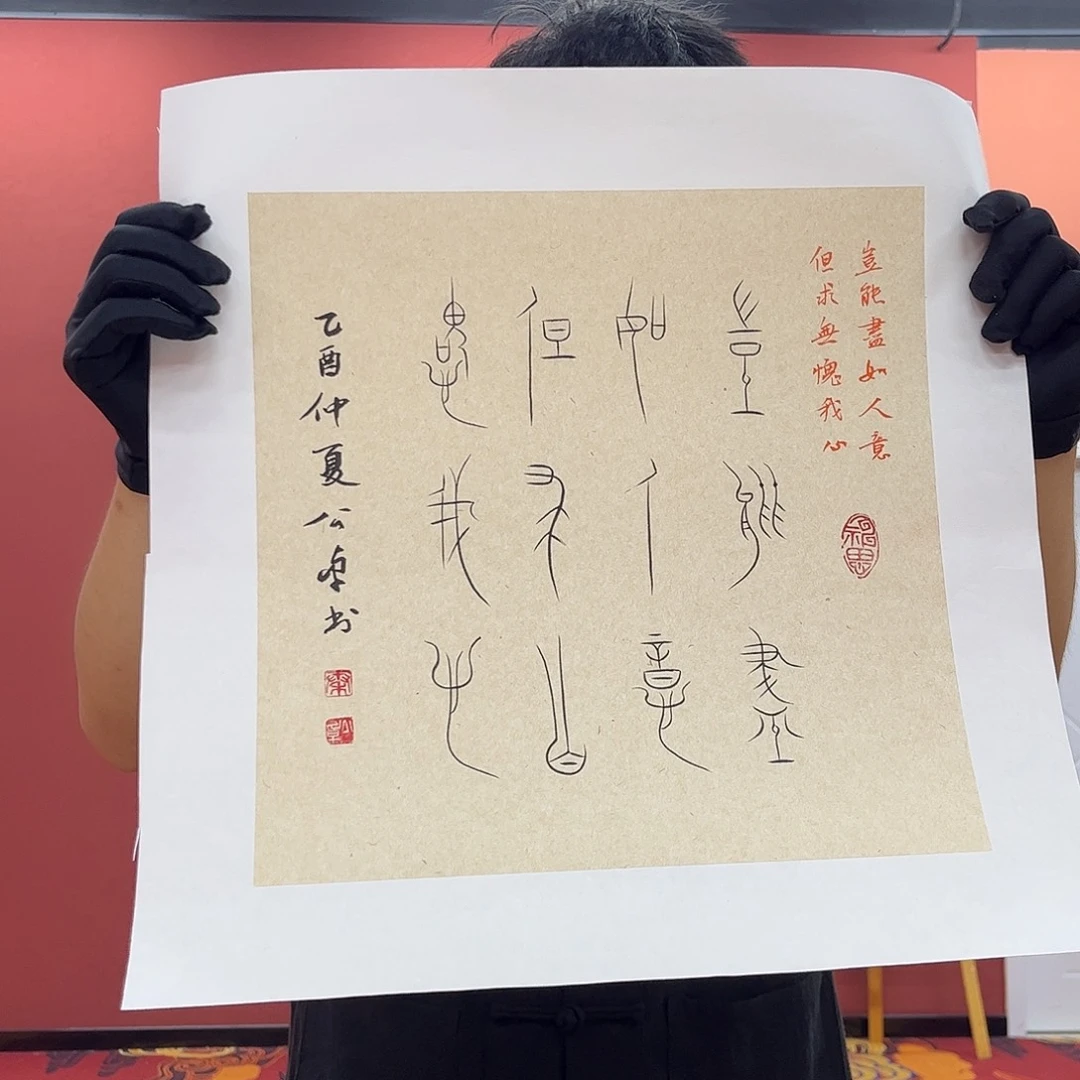 豈能盡如人意
但求無愧我心
豈能盡
如人意
但求無
愧我心
乙酉仲夏公书